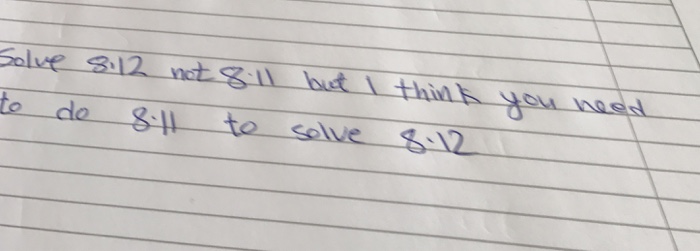 Solve 8.12 not 8.11 but I think you need
to do 8.11 to solve 8.12